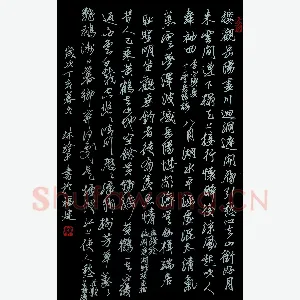 樓觀岳陽盡川迥洞庭開雁引愁心去山銜好月
來雲間連下榻天上接行杯醉後涼風起吹人
舞袖回 八月湖水平涵虛混太清
氣蒸雲夢澤波撼岳陽城欲濟無舟楫端居
恥聖明坐觀垂釣者徒有羨魚情
昔人已乘黃鶴去此地空餘黃鶴樓黃鶴一去不復
返白雲千載空悠悠晴川歷歷漢陽樹芳草萋萋
鸚鵡洲日暮鄉關何處是煙波江上使人愁
歲次丁亥 書 建
Shufawang.CN